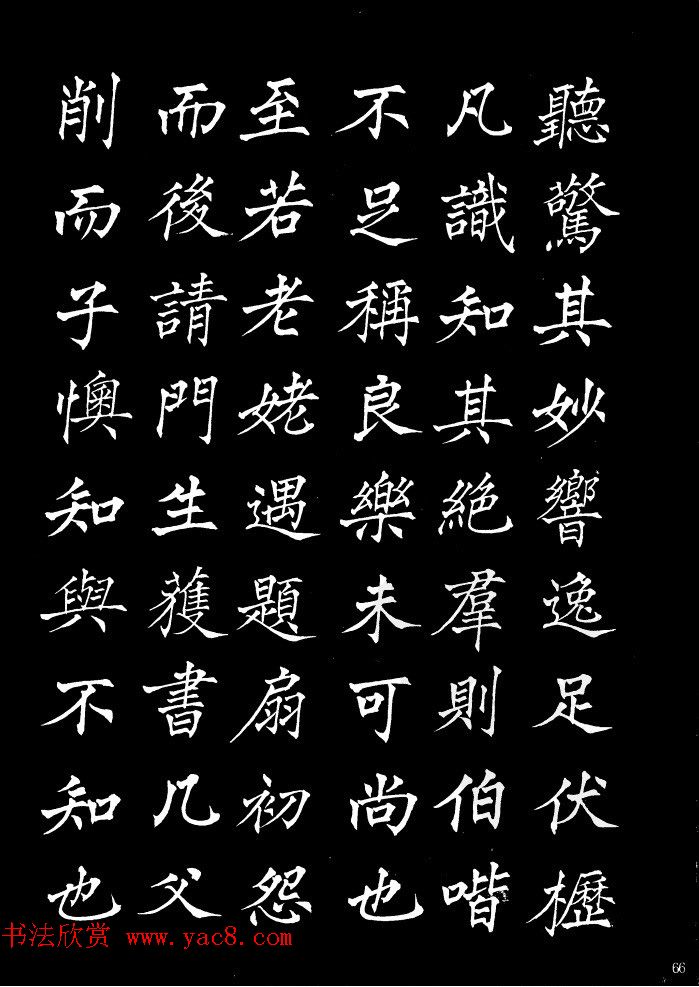 聽驚其妙響逸足伏櫪
凡識知其絶羣則伯喈
不足稱良樂未可尚也
至若老姥遇題扇初怨
而後請門生獲書几父
削而子懊知與不知也
书法欣赏 www.yac8.com
66